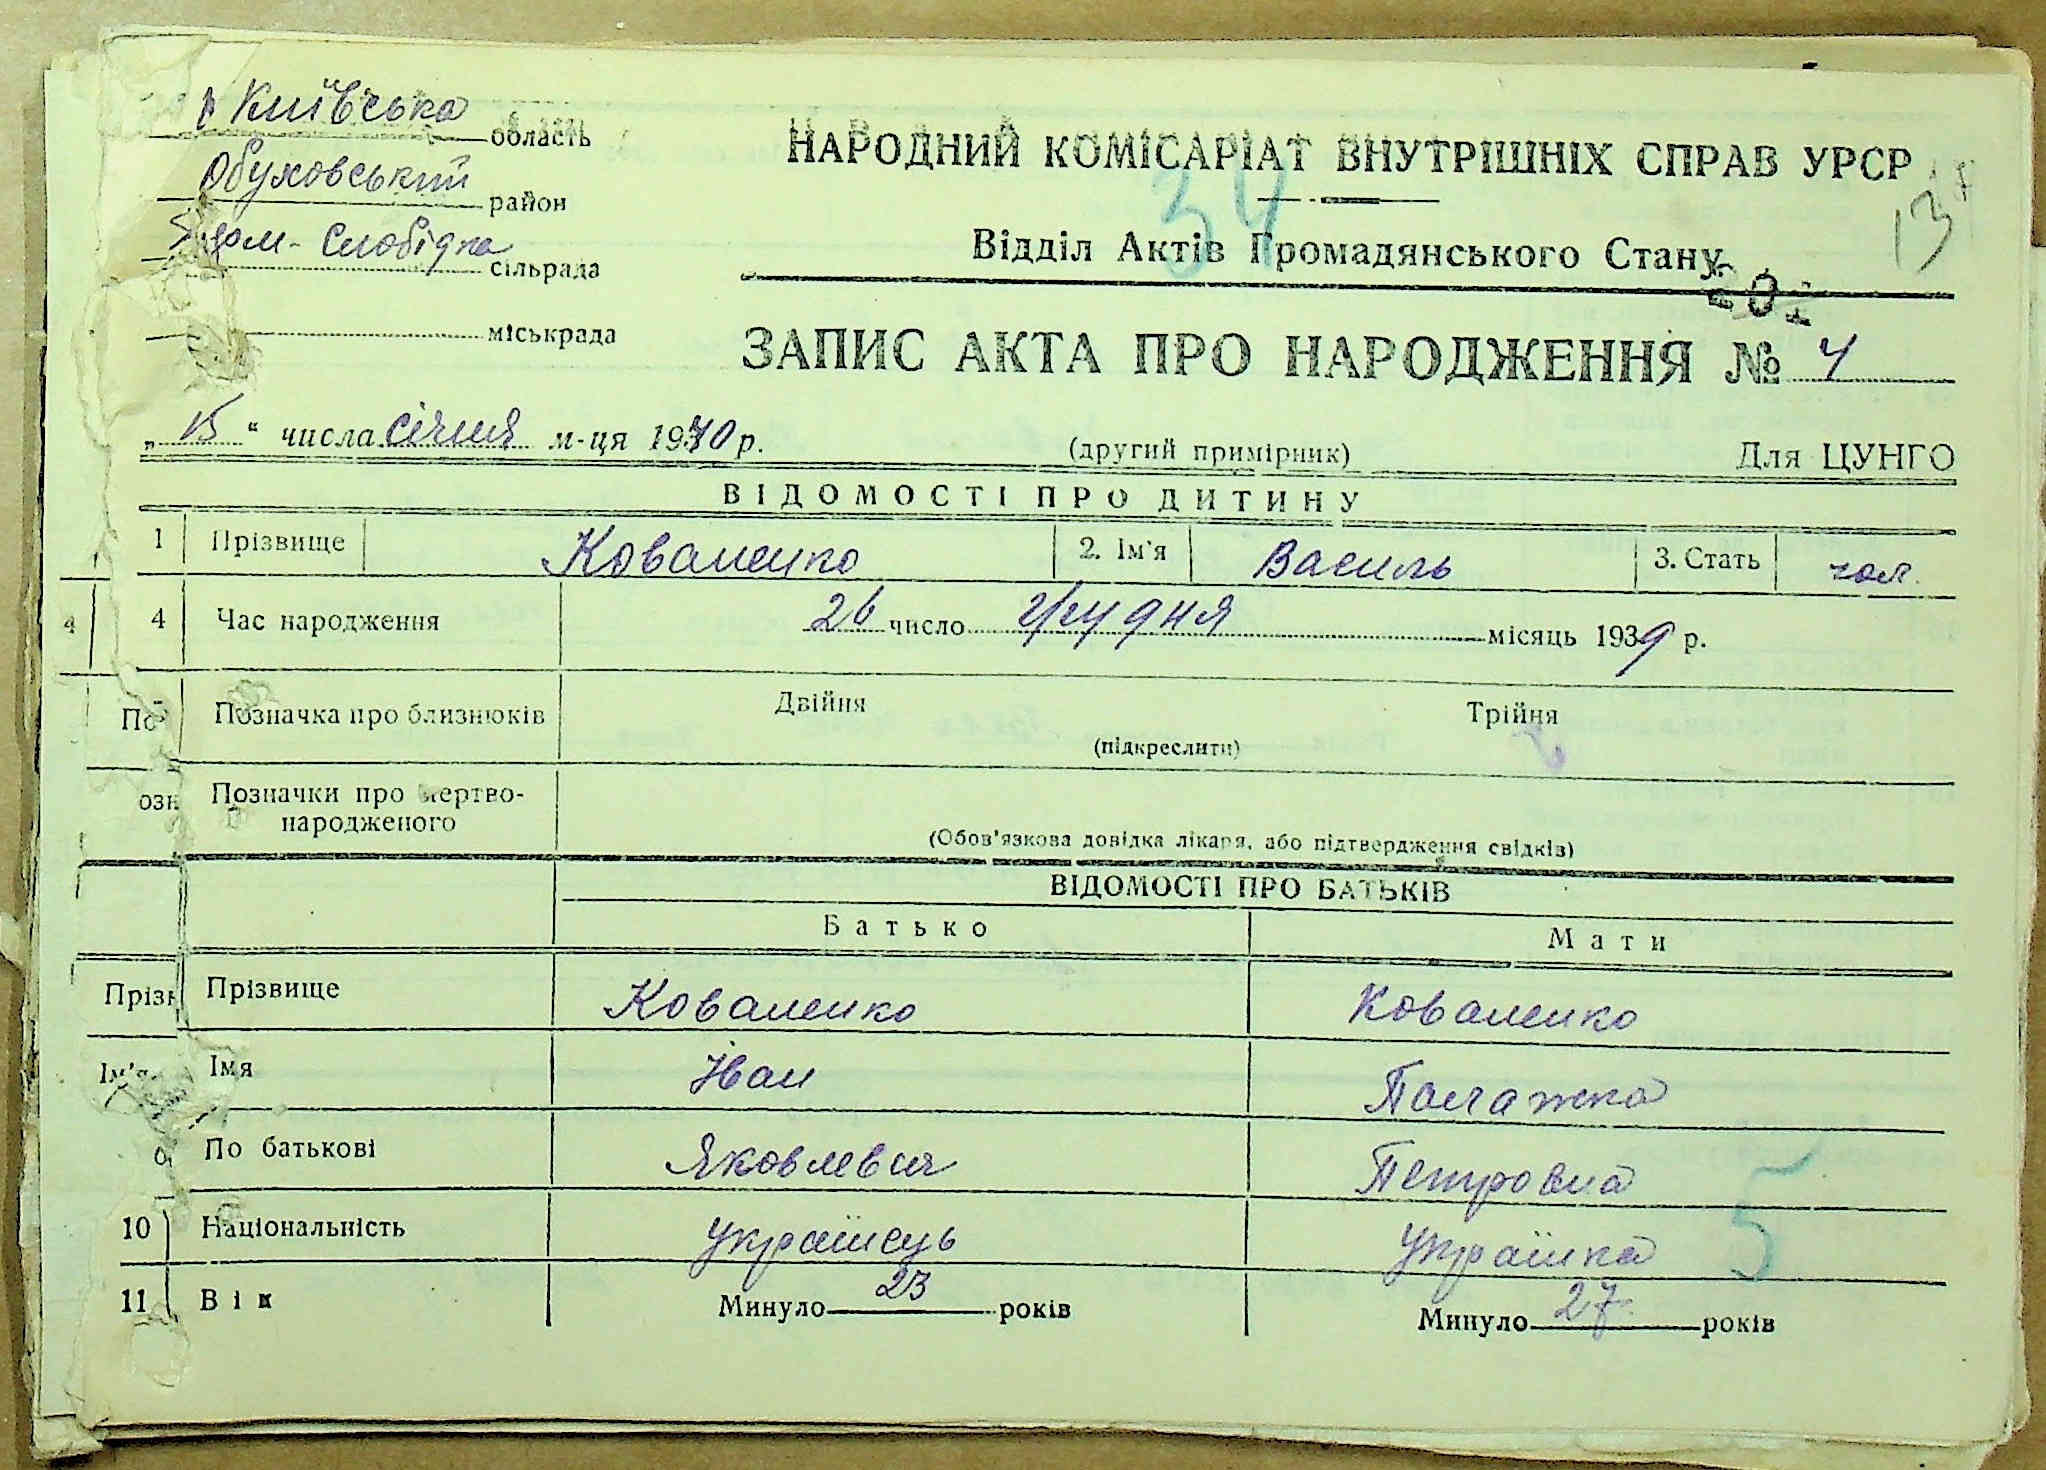 Київська область
Обуховський район
Слобідка сільрада
міськрада
НАРОДНИЙ КОМІСАРІАТ ВНУТРІШНІХ СПРАВ УРСР
34
13
Відділ Актів Громадянського Стану
201
ЗАПИС АКТА ПРО НАРОДЖЕННЯ № 4
„15“ числа січня м-ця 1940 р. (другий примірник) Для ЦУНГО
ВІДОМОСТІ ПРО ДИТИНУ
1 Прізвище Коваленко 2. Ім'я Василь 3. Стать чол.
4 4 Час народження 26 число грудня місяць 1939 р.
Позначка про близнюків Двійня Трійня
(підкреслити)
озн Позначки про мертво-
народженого
(Обов'язкова довідка лікаря, або підтвердження свідків)
ВІДОМОСТІ ПРО БАТЬКІВ
Батько Мати
Прізв Прізвище Коваленко Коваленко
Ім'я Імя Іван Палажка
По батькові Яковлевич Петровна
10 Національність українець Українка
5
11 Вік Минуло 23 років Минуло 27 років